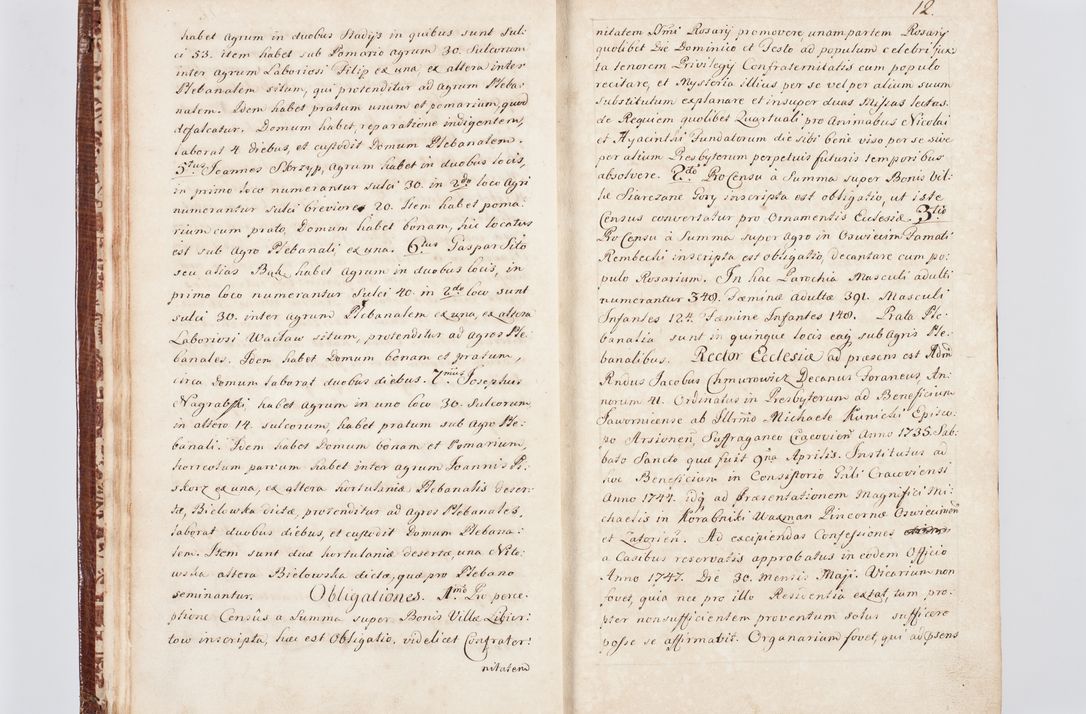 habet agrum in duobus Stadijs in quibus sunt Sul-
ci 53. item habet sub Pomario agrum 30. Sulcorum
inter agrum Laboriosi Filip ex una, ex altera inter
Plebanalem situm, qui protenditur ad agrum Pleba-
nalem. Idem habet pratum unum et pomarium, quod
defalcatur. Domum habet, reparatione indigentem,
laborat 4 diebus, et custodit Domum Plebanalem.
5tus Joannes Skrzyp, agrum habet in duobus locis,
in primo loco numerantur sulci 30. in 2do loco Agri
numerantur sulci breviores 20. Item habet poma-
rium cum prato, Domum habet bonam, hic locatus
est sub agro Plebanali ex una. 6tus Gaspar Sito
seu alias Buk habet agrum in duobus locis, in
primo loco numerantur Sulci 40. in 2do loco sunt
sulci 30. inter agrum Plebanalem ex una, ex altera
Laboriosi Wacław situm, protenditur ad agros Ple-
banales. Idem habet Domum bonam et pratum,
circa domum laborat duobus diebus. 7mus Josephus
Nagrabski, habet agrum in uno loco 30. Sulcorum,
in altero 14. sulcorum, habet pratum sub agro Ple-
banali. Idem habet Domum bonam et Pomarium,
horreolum parvum habet inter agrum Joannis
Skorz ex una, ex altera hortulaniæ Plebanalis deser-
tæ, Bielowska dictæ, protenditur ad agros Plebanales,
laborat duobus diebus, et custodit Domum Plebana-
lem. Item sunt duæ hortulaniæ desertæ, una Nito-
wska altera Bielowska dictæ, quæ pro Plebano
seminantur. Obligationes. 1mo Pro perce-
ptione Censûs a Summa super Bonis Villæ Libier-
tow inscripta, hæc est Obligatio, videlicet Confrater-
nitatem
12.
nitatem SSmi Rosarij promovere unam partem Rosarij
quolibet Die Dominico et Festo ad populum celebri jux-
ta tenorem Privilegij Confraternitatis cum populo
recitare, et Mysteria illius, per se vel per alium suum
substitutum explanare et insuper duas Missas lectas.
de Requiem quolibet Quartuali pro Animabus Nicolai
et Hyacinthi Fundatorum die sibi bene viso per se sive
per alium Presbyterum perpetuis futuris temporibus
absolvere. 2do Pro Censu à Summa super Bonis Vil-
læ Siarczane Gory inscripta est obligatio, ut iste
Census convertatur pro Ornamentis Ecclesiæ. 3tio
Pro Censu à Summa super Agro in Oswiecim Famati
Rembecki inscripta est obligatio, decantare cum po-
pulo Rosarium. In hac Parochia Masculi adulti
numerantur 340. Fæminæ Adultæ 391. Masculi
Infantes 124. Fæmine Infantes 140. Prata Ple-
banalia sunt in quinque locis eaq sub agris Ple-
banalibus. Rector Ecclesiæ ad præsens est Admo
Rndus Jacobus Chmurowicz Decanus Foraneus, An-
norum 41. Ordinatus in Presbyterum ad Beneficium
Jawornicense ab Illrmo Michaele Kunicki Episco-
po Arsionen, Suffraganeo Cracovien Anno 1735. Sab-
bato Sancto quæ fuit 9na Aprilis. Institutus ad
hoc Beneficium in Consistorio Grli Cracoviensi
Anno 1744. idq ad Præsentationem Magnifici Mi-
chaelis in Korabniki Waxman Pincernæ Oswiecimen
et Zatorien. Ad excipiendas Confessiones
a Casibus reservatis approbatus in eodem Officio
Anno 1747. Die 30. mensis Maji. Vicarium non
fovet, quia nec pro illo Residentia extat, tam pro-
pter non sufficientem proventum solus sufficere
posse se affirmavit. Organarium fovet, qui ad præsens